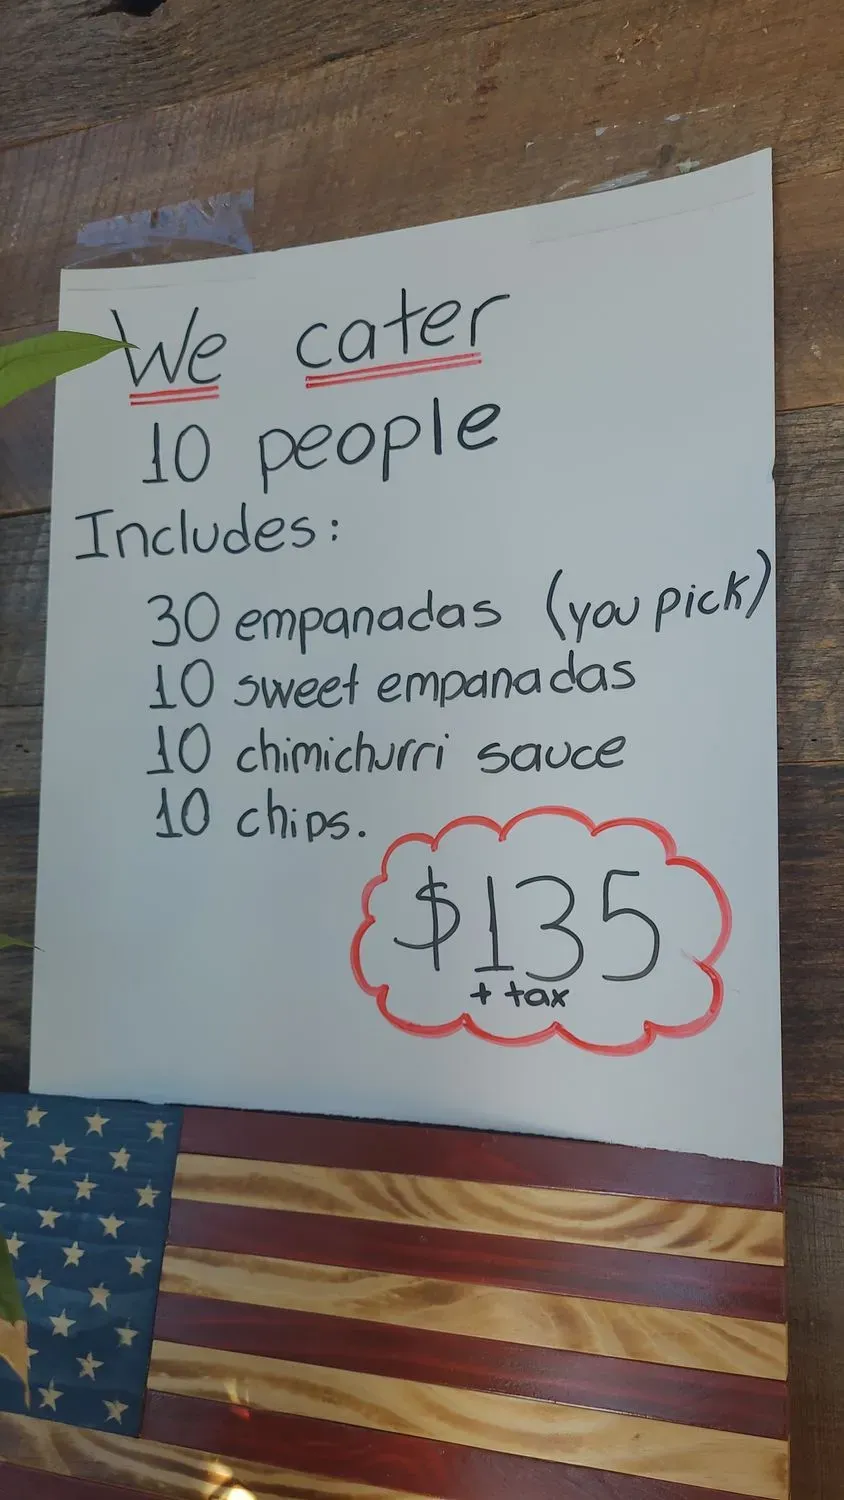 We cater
10 people
Includes:
30 empanadas (you pick)
10 sweet empanadas
10 chimichurri sauce
10 chips.
$135
+ tax